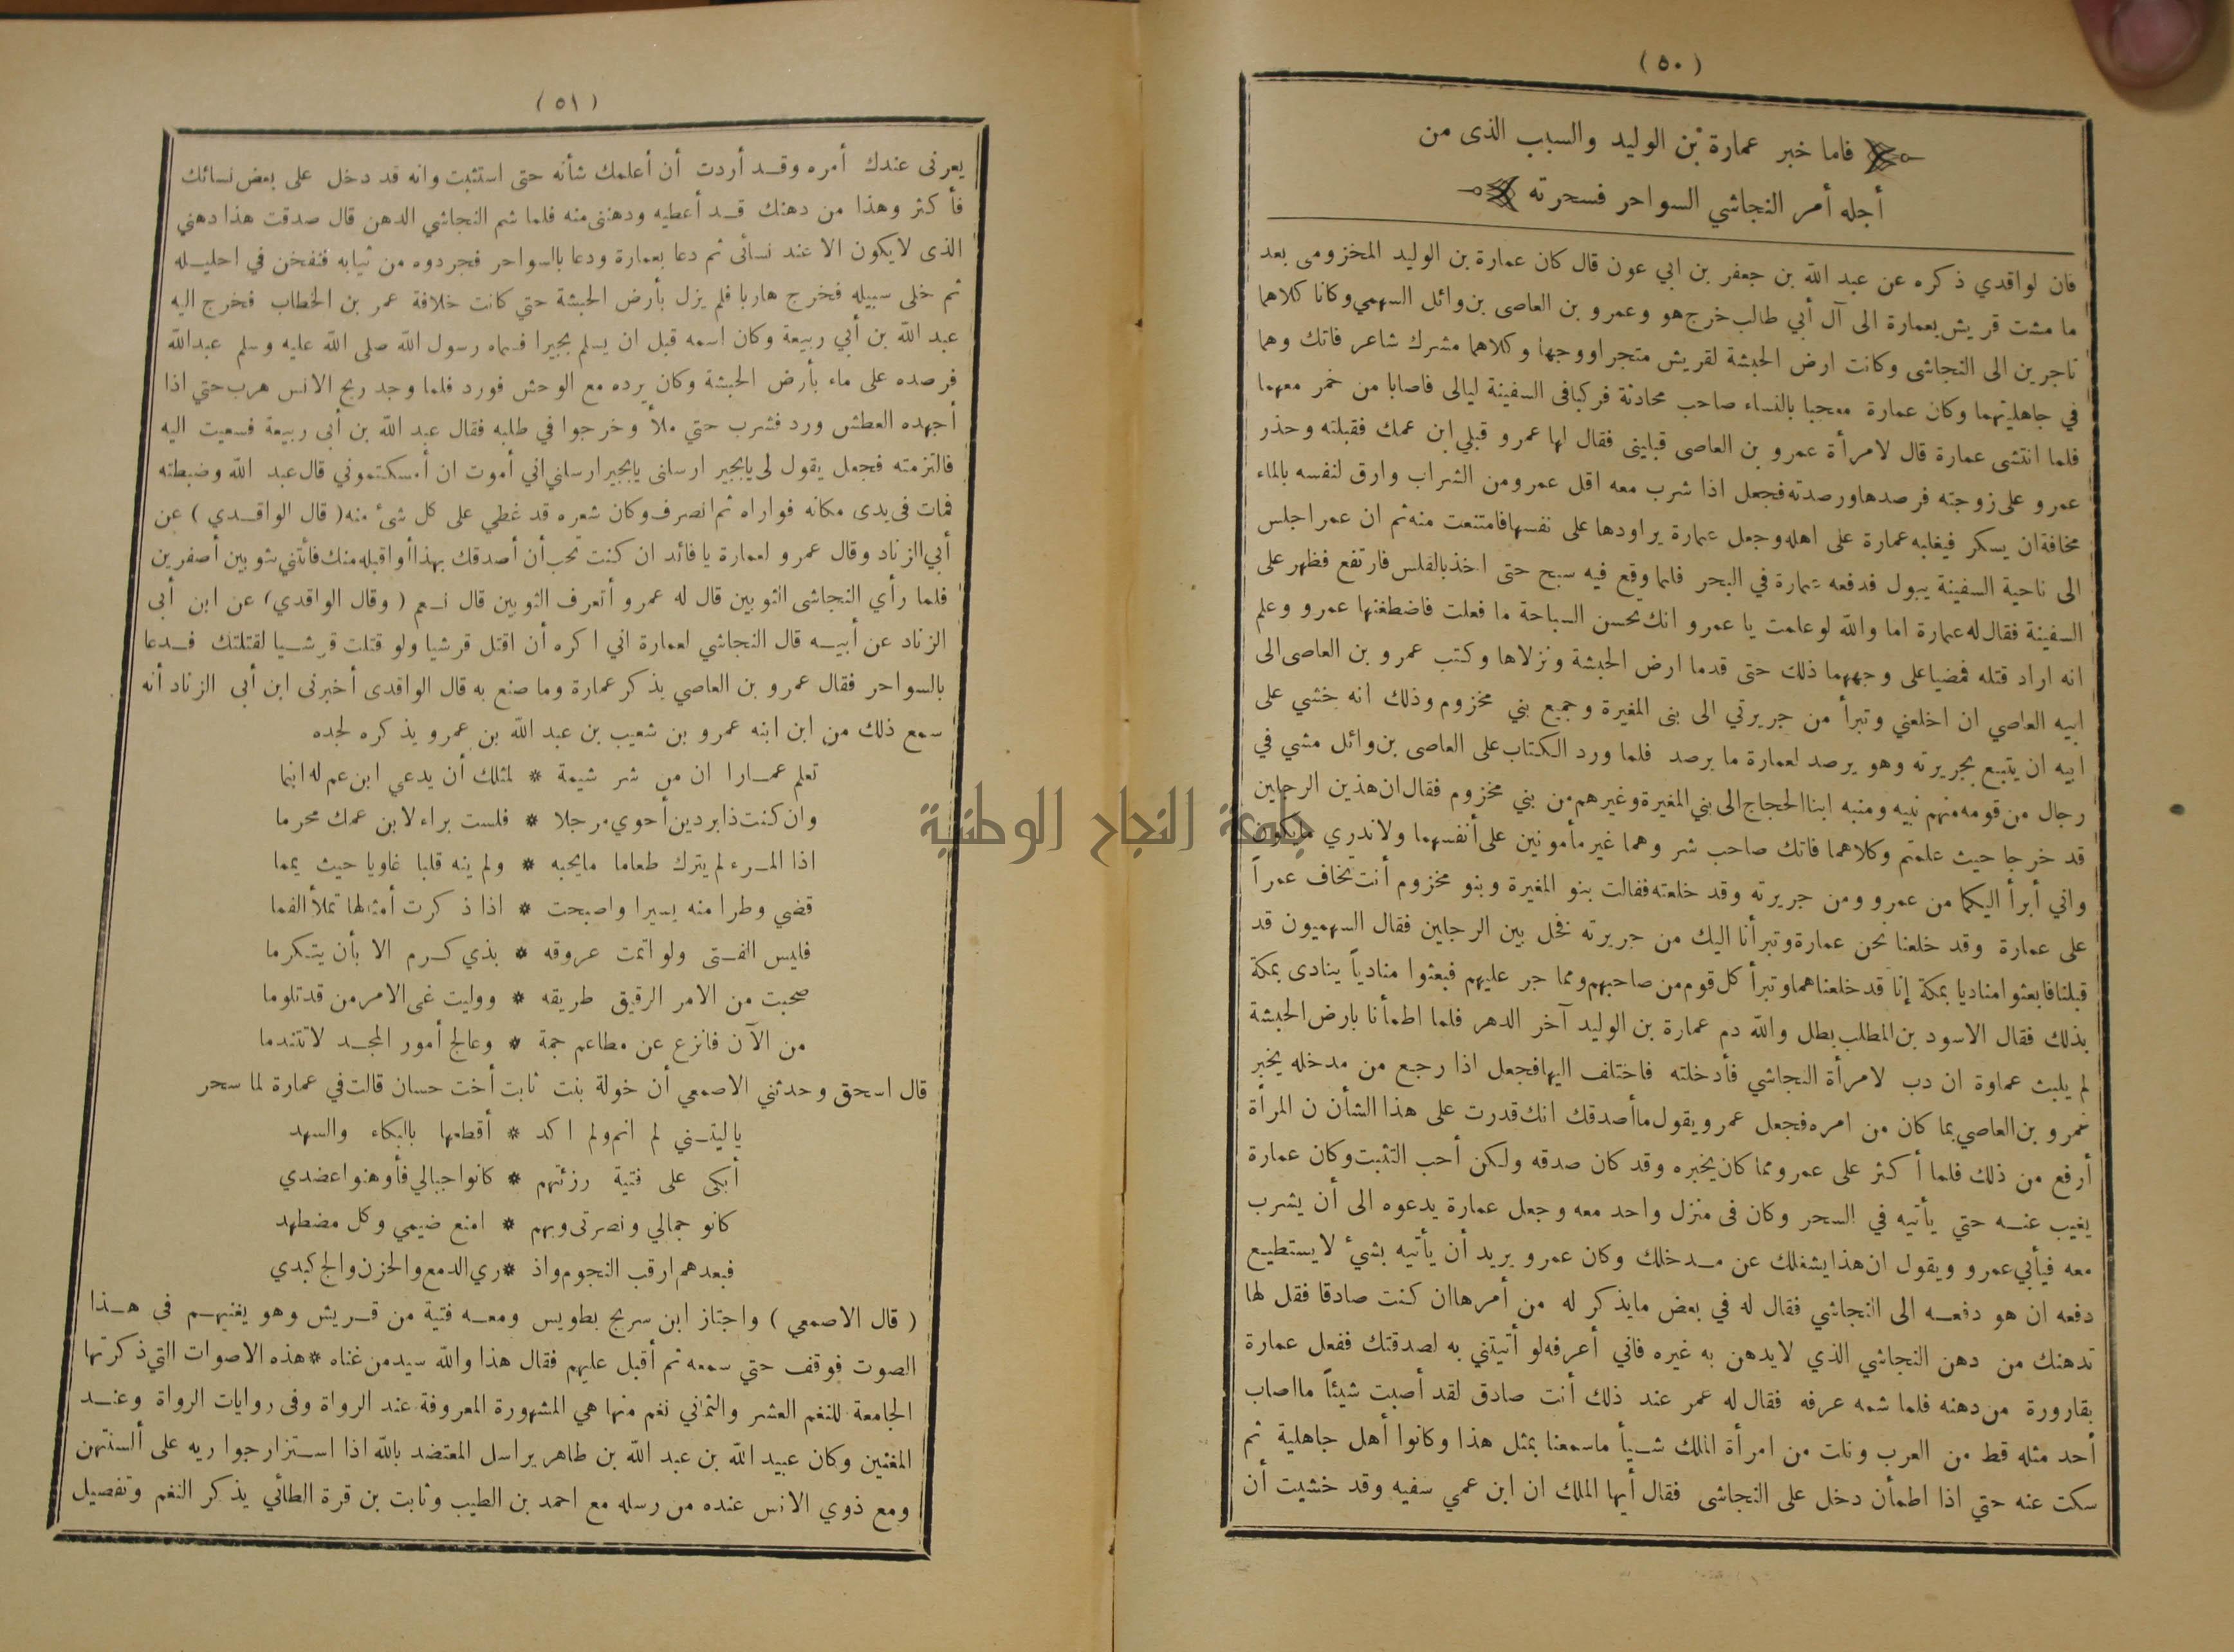 ( ٥٠ )
فاما خبر عمارة بن الوليد والسبب الذى من
أجله أمر النجاشي السواحر فسحرته
فان لواقدي ذكره عن عبد الله بن جعفر بن ابي عون قال كان عمارة بن الوليد المخزومى بعد
ما مشت قريش بعمارة الى آل أبي طالب خرج هو وعمرو بن العاصى بن وائل السهمي وكانا كلاهما
تاجرين الى النجاشى وكانت ارض الحبشة لقريش متجرا ووجها وكلاهما مشرك شاعر فاتك وهما
في جاهليتهما وكان عمارة معجبا بالنساء صاحب محادثة فركبا فى السفينة ليالى فاصابا من خمر معهما
فلما انتشى عمارة قال لامرأة عمرو بن العاصى قبلينى فقال لها عمرو قبلي ابن عمك فقبلته وحذر
عمرو على زوجته فرصدها ورصدته فجعل اذا شرب معه اقل عمرو من الشراب وارق لنفسه بالماء
مخافة ان يسكر فيغلبه عمارة على اهله وجعل عمارة يراودها على نفسها فامتنعت منه ثم ان عمرا جلس
الى ناحية السفينة يبول فدفعه عمارة في البحر فلما وقع فيه سبح حتى اخذ بالقلس فارتفع فظهر على
السفينة فقال له عمارة اما والله لو علمت يا عمرو انك تحسن السباحة ما فعلت فاضطغنها عمرو وعلم
انه اراد قتله فمضيا على وجههما ذلك حتى قدما ارض الحبشة ونزلاها وكتب عمرو بن العاصى الى
ابيه العاصي ان اخلعني وتبرأ من جريرتي الى بنى المغيرة وجميع بني مخزوم وذلك انه خشي على
ابيه ان يتبع بجريرته وهو يرصد لعمارة ما يرصد فلما ورد الكتاب على العاصى بن وائل مشي في
رجال من قومه منهم نبيه ومنبه ابنا الحجاج الى بني المغيرة وغيرهم من بني مخزوم فقال ان هذين الرجلين
قد خرجا حيث علمتم وكلاهما فاتك صاحب شر وهما غير مأمونين على أنفسهما ولا ندري ما يكون
واني أبرأ اليكما من عمرو ومن جريرته وقد خلعته فقالت بنو المغيرة وبنو مخزوم أنت تخاف عمراً
على عمارة وقد خلعنا نحن عمارة وتبرأنا اليك من جريرته فخل بين الرجلين فقال السهميون قد
قبلنا فابعثوا مناديا بمكة إنا قد خلعناهما وتبرأ كل قوم من صاحبهم ومما جر عليهم فبعثوا منادياً ينادى بمكة
بذلك فقال الاسود بن المطلب بطل والله دم عمارة بن الوليد آخر الدهر فلما اطمأنا بارض الحبشة
لم يلبث عماوة ان دب لامرأة النجاشي فأدخلته فاختلف اليها فجعل اذا رجع من مدخله يخبر
عمرو بن العاصي بما كان من امره فجعل عمرو يقول ما أصدقك انك قدرت على هذا الشأن ن المرأة
أرفع من ذلك فلما أكثر على عمرو مما كان يخبره وقد كان صدقه ولكن أحب التثبت وكان عمارة
يغيب عنه حتي يأتيه في السحر وكان فى منزل واحد معه وجعل عمارة يدعوه الى أن يشرب
معه فيأبي عمرو ويقول ان هذا يشغلك عن مدخلك وكان عمرو يريد أن يأتيه بشيء لا يستطيع
دفعه ان هو دفعه الى النجاشي فقال له في بعض ما يذكر له من أمرها ان كنت صادقا فقل لها
تدهنك من دهن النجاشي الذي لا يدهن به غيره فاني أعرفه لو أتيتني به لصدقتك ففعل عمارة
بقارورة من دهنه فلما شمه عرفه فقال له عمر عند ذلك أنت صادق لقد أصبت شيئاً ما اصاب
أحد مثله قط من العرب ونلت من امرأة الملك شيأ ما سمعنا بمثل هذا وكانوا أهل جاهلية ثم
سكت عنه حتي اذا اطمأن دخل على النجاشى فقال أيها الملك ان ابن عمي سفيه وقد خشيت أن
( ٥١ )
يعرنى عندك أمره وقد أردت أن أعلمك شأنه حتى استثبت وانه قد دخل على بعض نسائك
فأكثر وهذا من دهنك قد أعطيه ودهننى منه فلما شم النجاشي الدهن قال صدقت هذا دهني
الذى لا يكون الا عند نسائى ثم دعا بعمارة ودعا بالسواحر فجردوه من ثيابه فنفخن في احليله
ثم خلى سبيله فخرج هاربا فلم يزل بأرض الحبشة حتي كانت خلافة عمر بن الخطاب فخرج اليه
عبد الله بن أبي ربيعة وكان اسمه قبل ان يسلم بجيرا فسماه رسول الله صلى الله عليه وسلم عبدالله
فرصده على ماء بأرض الحبشة وكان يرده مع الوحش فورد فلما وجد ريح الانس هرب حتي اذا
أجهده العطش ورد فشرب حتي ملأ وخرجوا في طلبه فقال عبد الله بن أبى ربيعة فسعيت اليه
فالتزمته فجعل يقول لى يا بجير ارسلنى يا بجير ارسلني اني أموت ان أمسكتموني قال عبد الله وضبطته
فمات فى يدى مكانه فواراه ثم انصرف وكان شعره قد غطي على كل شئ منه ( قال الواقدي ) عن
أبي الزناد وقال عمرو لعمارة يا فائد ان كنت تحب أن أصدقك بهذا أو اقبله منك فأتني بثوبين أصفرين
فلما رأي النجاشى الثوبين قال له عمرو أتعرف الثوبين قال نعم ( وقال الواقدي ) عن ابن أبى
الزناد عن أبيه قال النجاشي لعمارة اني اكره أن اقتل قرشيا ولو قتلت قرشيا لقتلتك فدعا
بالسواحر فقال عمرو بن العاصي يذكر عمارة وما صنع به قال الواقدى أخبرنى ابن أبى الزناد أنه
سمع ذلك من ابن ابنه عمرو بن شعيب بن عبد الله بن عمرو يذكره لجده
تعلم عمارا ان من شر شيمة * لمثلك أن يدعي ابن عم له ابنما
وان كنت ذا بردين أحوي مرجلا * فلست براء لابن عمك محرما
اذا المرء لم يترك طعاما ما يحبه * ولم ينه قلبا غاويا حيث يمما
قضي وطرا منه يسيرا واصبحت * اذا ذكرت أمثالها تملأ الفما
فليس الفتى ولو اتمت عروقه * بذي كرم الا بأن يتكرما
صحبت من الامر الرقيق طريقه * ووليت غى الامر من قد تلوما
من الآن فانزع عن مطاعم جمة * وعالج أمور المجد لا تتندما
قال اسحق وحدثني الاصمعي أن خولة بنت ثابت أخت حسان قالت في عمارة لما سحر
يا ليتني لم انم ولم اكد * أقطعها بالبكاء والسهد
أبكى على فتية رزئتهم * كانوا جبالي فأوهنوا عضدي
كانو جمالي ونصرتى وبهم * امنع ضيمي وكل مضطهد
فبعدهم ارقب النجوم واذ * ري الدمع والحزن والج كبدي
( قال الاصمعي ) واجتاز ابن سريج بطويس ومعه فتية من قريش وهو يغنيهم في هذا
الصوت فوقف حتي سمعه ثم أقبل عليهم فقال هذا والله سيد من غناه * هذه الاصوات التي ذكرتها
الجامعة للنغم العشر والثماني نغم منها هي المشهورة المعروفة عند الرواة وفى روايات الرواة وعند
المغنين وكان عبيد الله بن عبد الله بن طاهر يراسل المعتضد بالله اذا استزار جواريه على ألسنتهن
ومع ذوي الانس عنده من رسله مع احمد بن الطيب وثابت بن قرة الطائي يذكر النغم وتفصيل
جامعة النجاح الوطنية